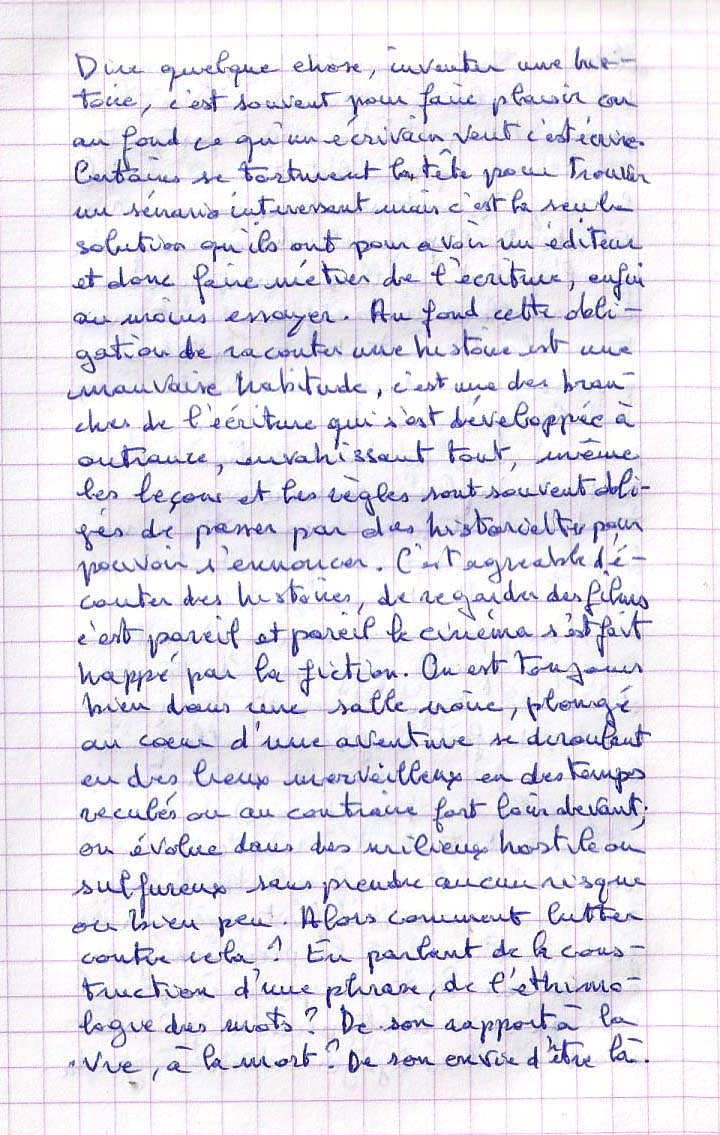 Dire quelque chose, inventer une his-
toire, c'est souvent pour faire plaisir car
au fond ce qu'un écrivain veut c'est écrire.
Certains se torturent la tête pour trouver
un sénario interessant mais c'est la seule
solution qu'ils ont pour avoir un éditeur
et donc faire métier de l'écriture, enfin
au moins essayer. Au fond cette obli-
gation de raconter une histoire est une
mauvaise habitude, c'est une des bran-
ches de l'écriture qui s'est développée à
outrance, envahissant tout, même
les leçons et les règles sont souvent obli-
gés de passer par des historiettes pour
pouvoir s'ennoncer. C'est agreable d'é-
couter des histoires, de regarder des films
c'est pareil et pareil le cinéma s'est fait
happé par la fiction. On est toujours
bien dans une salle noire, plongé
au coeur d'une aventure se deroulant
en des lieux merveilleux en des temps
reculés ou au contraire fort loin devant;
on évolue dans des milieux hostile ou
sulfureux sans prendre aucun risque
ou bien peu. Alors comment lutter
contre cela? En parlant de la cons-
truction d'une phrase, de l'éthimo-
logie des mots? De son rapport à la
vie, à la mort? De son envie d'être là.